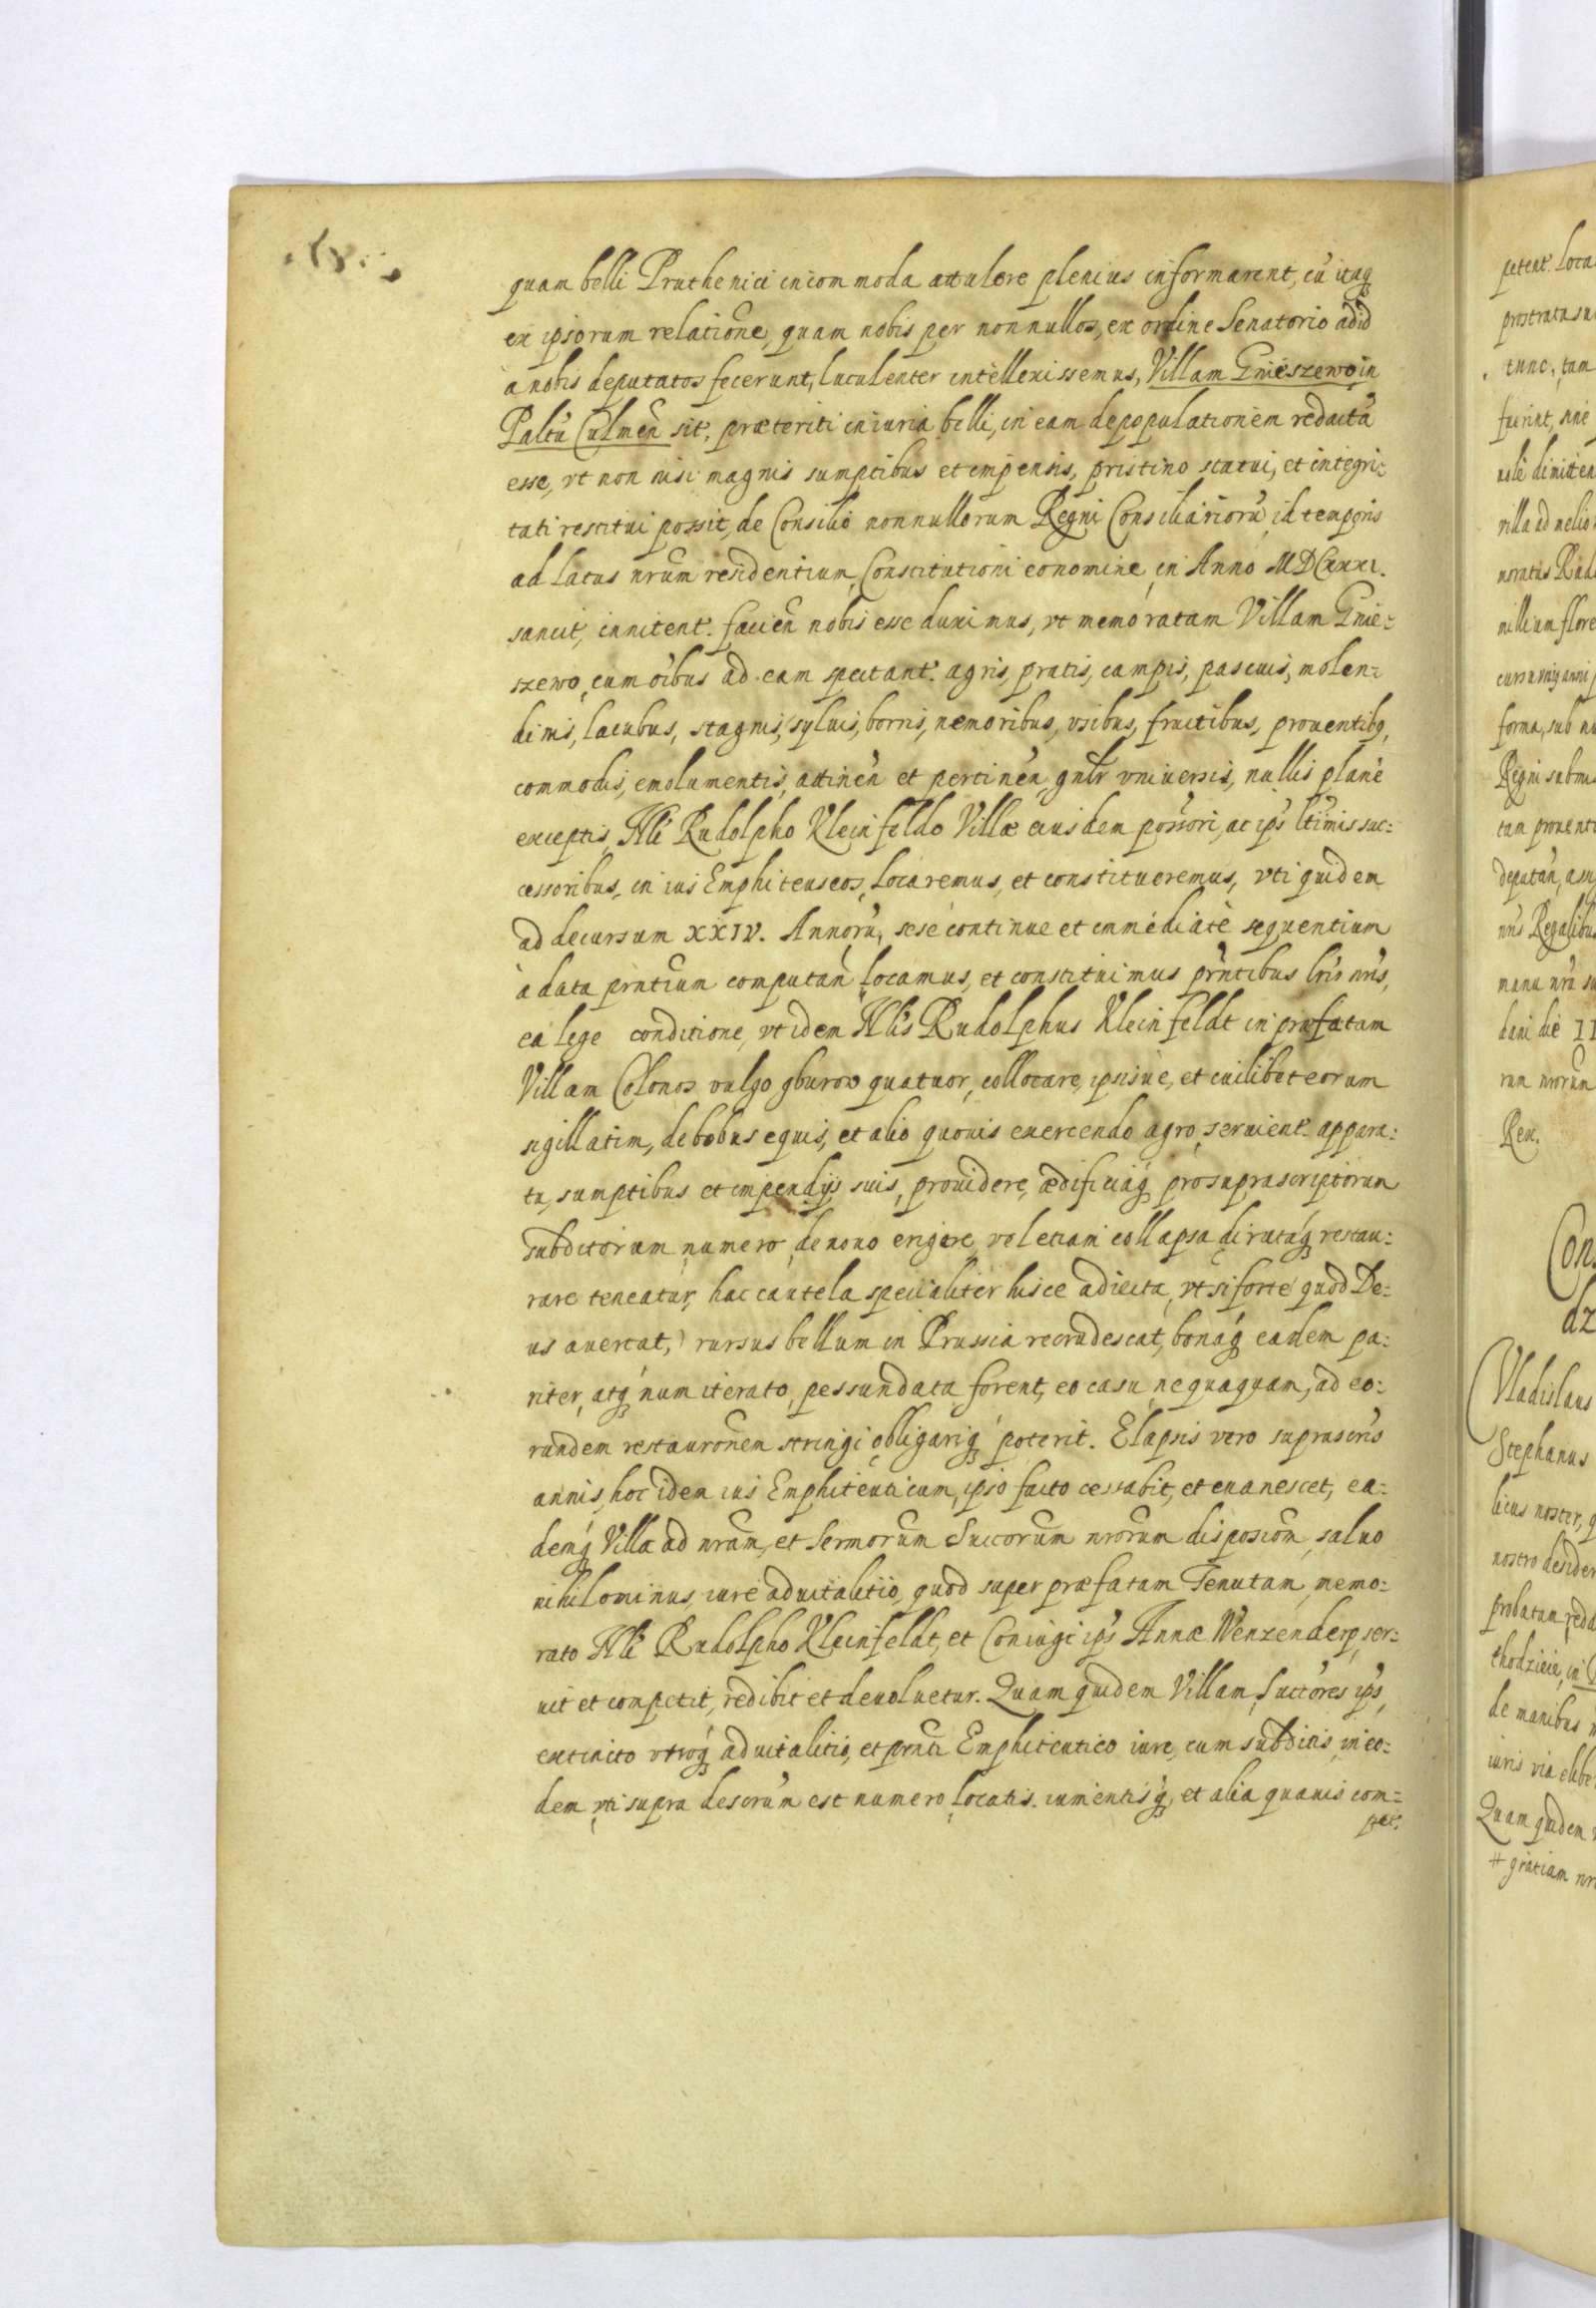 quam belli Pruthenici incommoda attulere plenius informarent, cũ itaq
ex ipsorum relatione, quam nobis per nonnullos, ex ordine Senatorio ad id
à nobis deputatos fecerunt, luculenter intellexissemus, Villam Gnieszewo in
Paltũ Culmeñ sit, præteriti iniuria belli, in eam depopulationem redactã
esse, vt non nisi magnis sumptibus et impensis, pristino statui, et integri-
tati restitui possit, de Consilio nonnullorum Regni Consiliariorũ, id temporis
ad latus nrum residentium, Constitutioni eo nomine in Anno MDCXXXI.
sancit, innitent. facień nobis esse duximus, vt memoratam Villam Gnie-
szewo, cum oibus ad eam spectant. agris, pratis, campis, pascuis, molen-
dinis, lacubus, stagnis, syluis, borris, nemoribus, vsibus, fructibus, prouentibq,
commodis, emolumentis, attineñ et pertineñ, gnlr vniuersis, nullis planè
exceptis, Nli Rudolpho Kleinfeldo Villæ eiusdem possori, ac ips ltimis suc-
cessoribus, in ius Emphiteuseos, locaremus, et constitueremus, vti quidem
ad decursum XXIV. Annorũ, sese continue et immediatè sequentium
à data pntium computañ locamus, et constituimus pntibus lris nris,
ea lege conditione, vt idem Nlis Rudolphus Kleinfeldt in præfatam
Villam Colonos vulgo gburow quatuor, collocare, ipsisue, et cuilibet eorum
sigillatim, de bobus equis, et alio quouis exercendo agro seruient. appara-
tu, sumptibus et impendijs suis, prouidere, ædificiaq pro suprascriptorum
subditorum numero de nouo erigere, vel etiam collapsa dirutaq restau-
rare teneatur, hac cautela specialiter hisce adiecta, vt si forte (quod De-
us auertat,) rursus bellum in Prussia recrudescat, bonaq eadem pa-
riter, atq num iterato, pessundata forent, eo casu nequaquam, ad eo-
rundem restauronem stringi obligariq poterit. Elapsis vero suprascris
annis, hoc idem ius Emphiteuticum, ipso facto cessabit, et euanescet, ea-
demq Villa ad nram, et Sermorum Succorum nrorum disposiom, saluo
nihilominus, iure aduitalitio, quod super præfatam Tenutam, memo-
rato Nli Rudolpho Kleinfeldt, et Coniugi ips Annæ Wenzenderp, ser-
uit et competit, redibit et deuoluetur. Quam quidem Villam, Suctores ips,
extincto vtroq aduitalitio, et pnti Emphiteutico iure, cum subditis, in eo-
dem vti supra descrum est numero locatis. iumentisq, et alia quauis com-
pet.
petent. loca
prostratasu
tunc, tam
fuerint, sine
nolẽ dimitten
villa ad melio
moratus Rud
millium flore
cursu vnig anni
forma, sub nu
Regni submis
tam prouent
deputañ, assi
nris Regalibus
manu nrã su
dani die II
rum nrorum
Rex.
Con
dz
Vladislaus
Stephanus
licus noster, q
nostro desider
probatam, redd
thodzieie, in
de manibus
iuris via elibe
Quam quidem
# gratiam nr